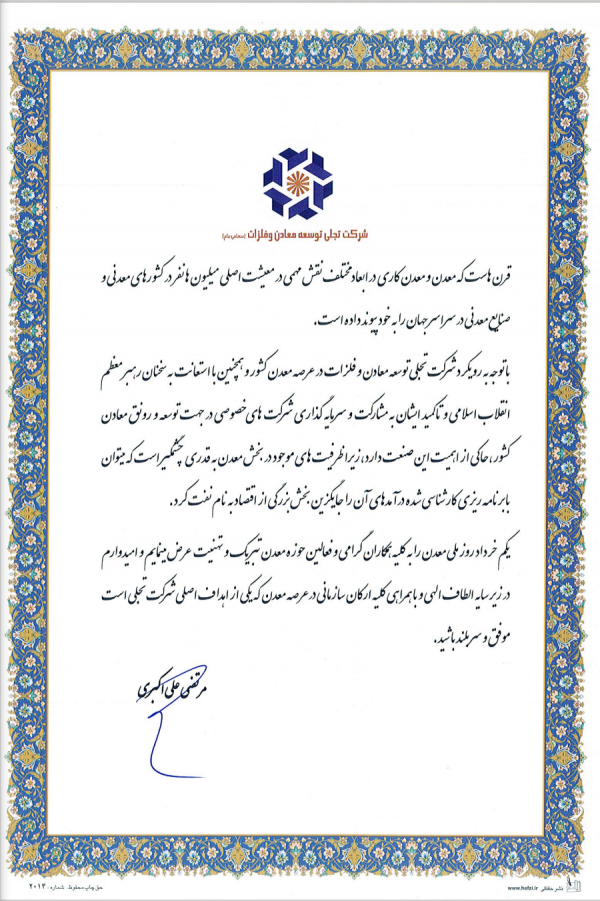 شرکت تجلی توسعه معادن و فلزات (سهامی عام)
قرن هاست که معدن و معدن کاری در ابعاد مختلف نقش مهمی در معیشت اصلی میلیون ها نفر در کشورهای معدنی و
صنایع معدنی در سراسر جهان را به خود پیوند داده است.
با توجه به رویکرد شرکت تجلی توسعه معادن و فلزات در عرصه معدن کشور و همچنین با استعانت به سخنان رهبر معظم
انقلاب اسلامی و تاکید ایشان به مشارکت و سرمایه گذاری شرکت های خصوصی در جهت توسعه و رونق معادن
کشور، حاکی از اهمیت این صنعت دارد، زیرا ظرفیت های موجود در بخش معدن به قدری چشمگیر است که میتوان
با برنامه ریزی کارشناسی شده درآمدهای آن را جایگزین بخش بزرگی از اقتصاد به نام نفت کرد.
یکم خرداد روز ملی معدن را به کلیه همکاران گرامی و فعالین حوزه معدن تبریک و تهنیت عرض مینمایم و امیدوارم
در زیر سایه الطاف الهی و با همراهی کلیه ارکان سازمانی در عرصه معدن که یکی از اهداف اصلی شرکت تجلی است
موفق و سربلند باشید.
مرتضی علی اکبری
حق چاپ محفوظ. شماره: ۲۰۱۳
www.hafzi.ir نشر حفاظی